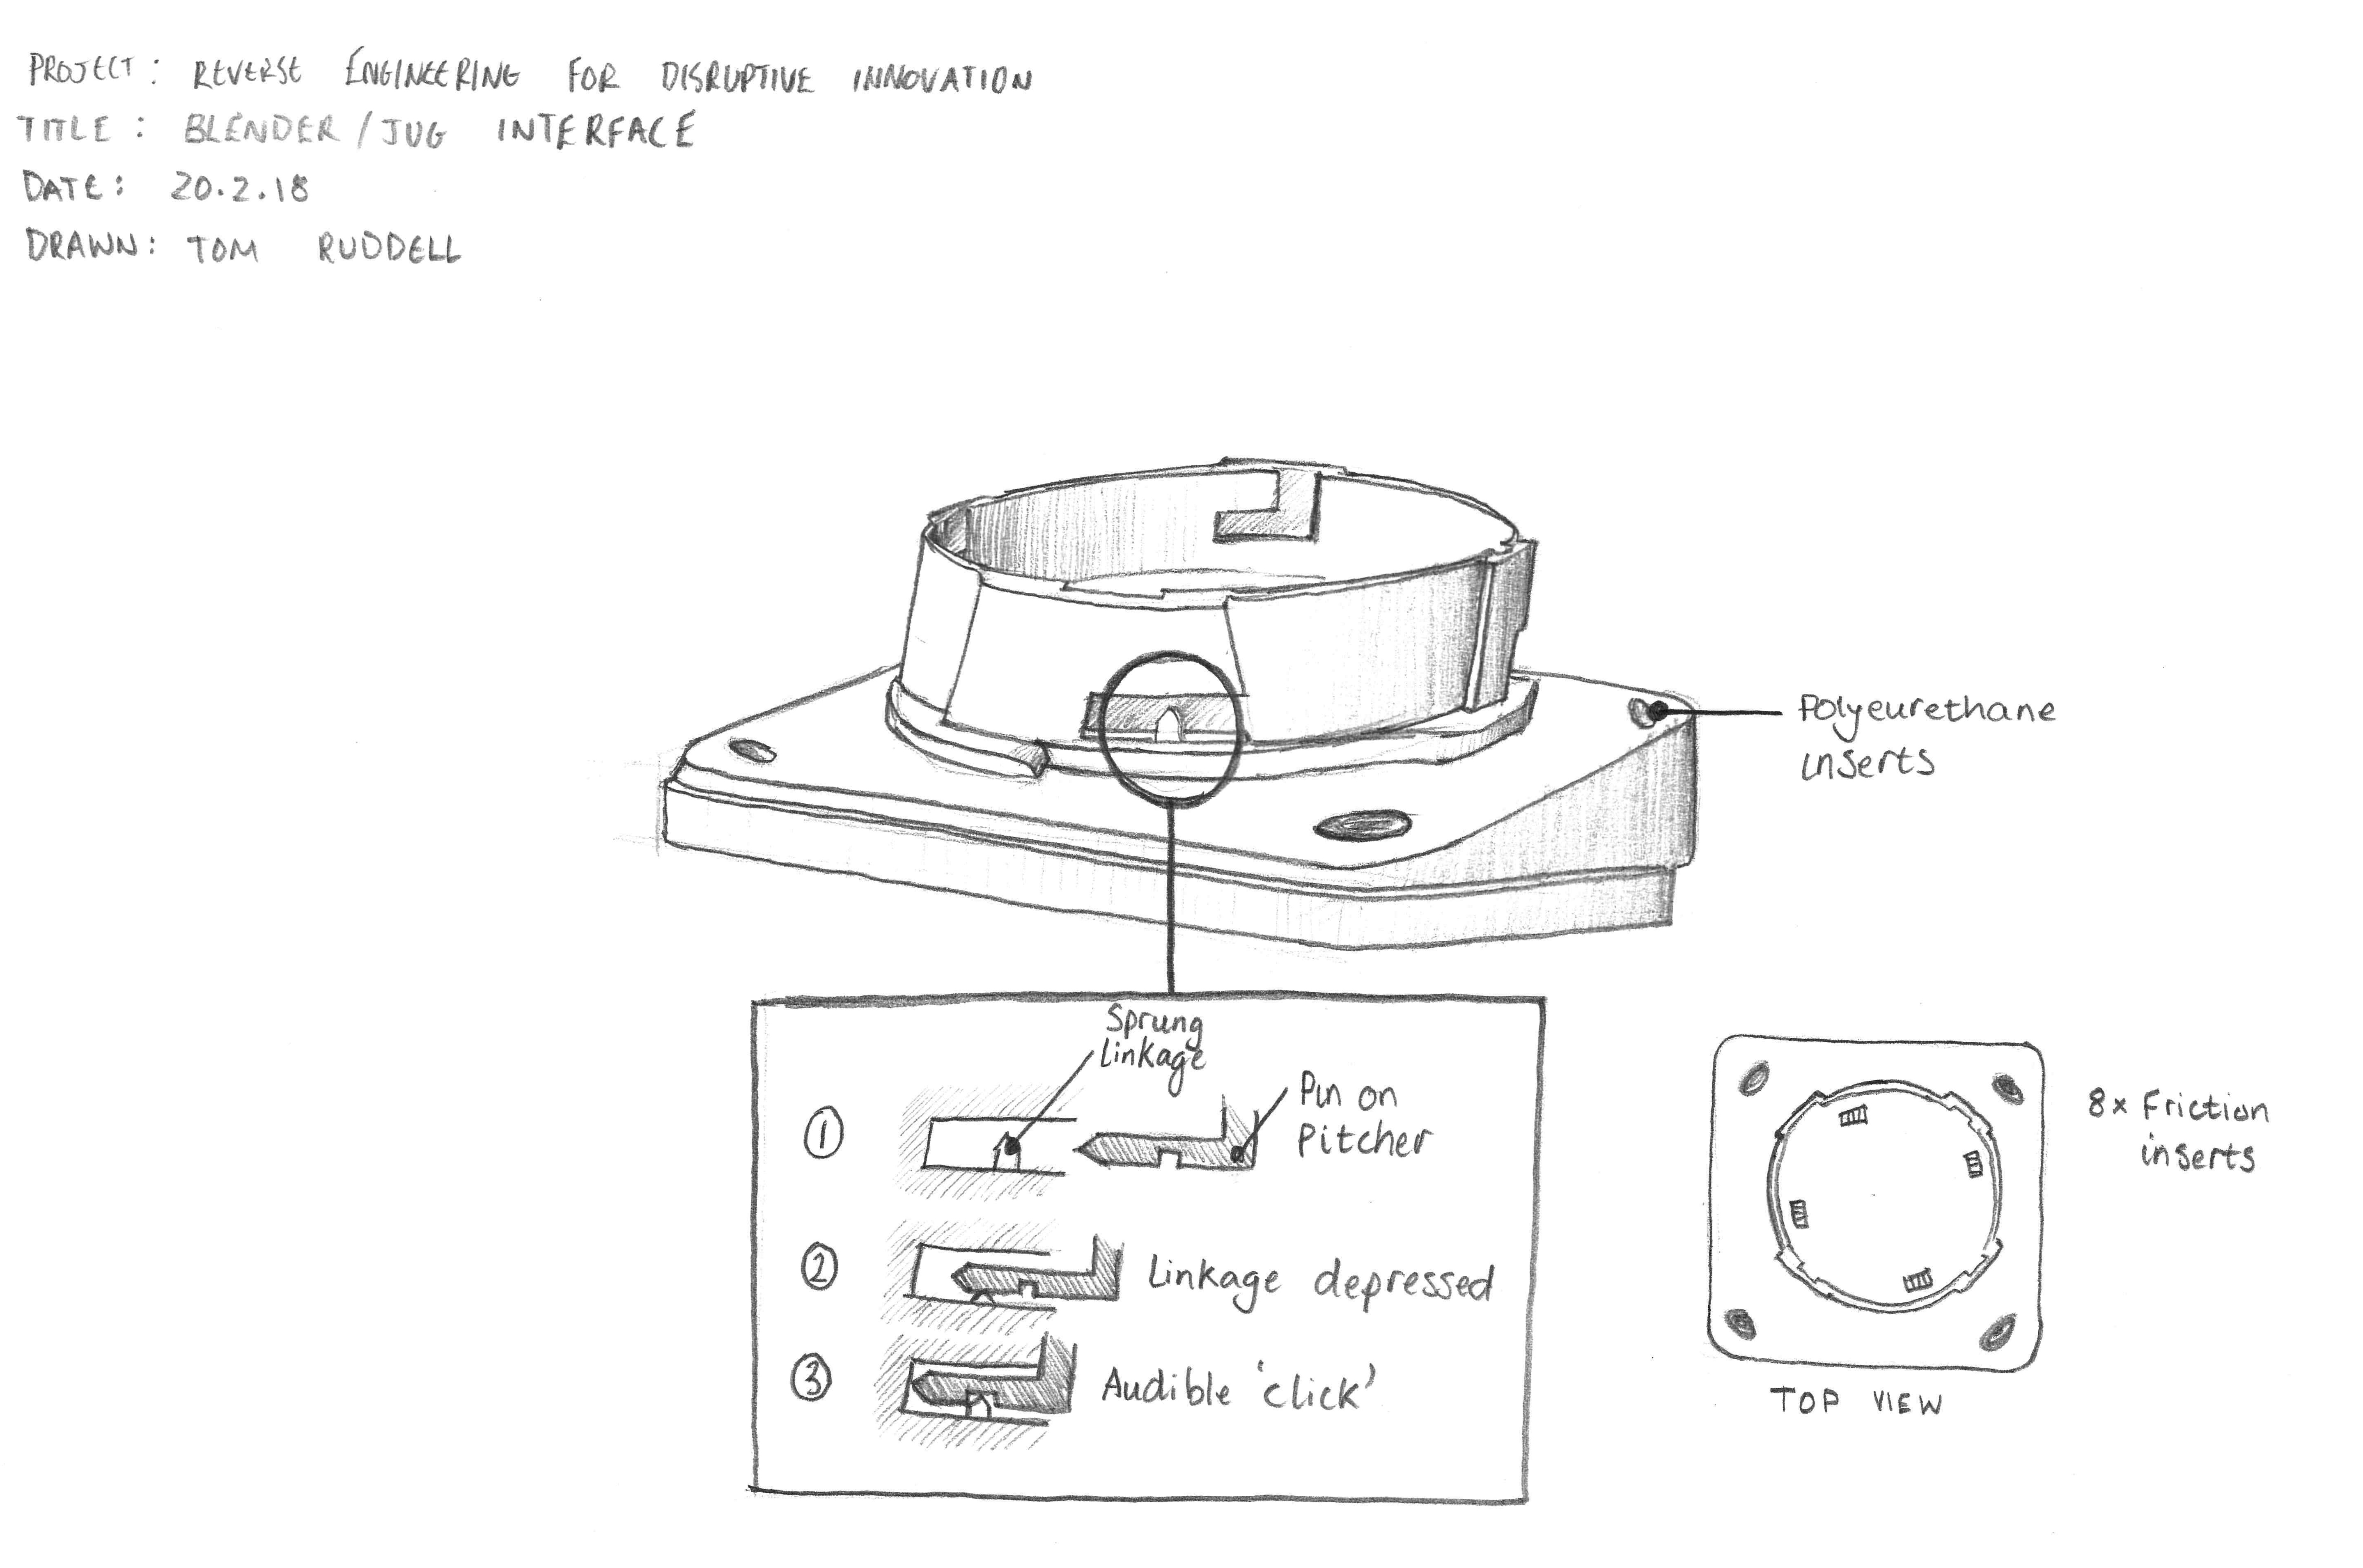 PROJECT: REVERSE ENGINEERING FOR DISRUPTIVE INNOVATION
TITLE: BLENDER/JUG INTERFACE
DATE: 20.2.18
DRAWN: TOM RUDDELL
Polyeurethane
inserts
Sprung
Linkage
1
Pin on
Pitcher
2
Linkage depressed
3
Audible 'click'
8x Friction
inserts
TOP VIEW